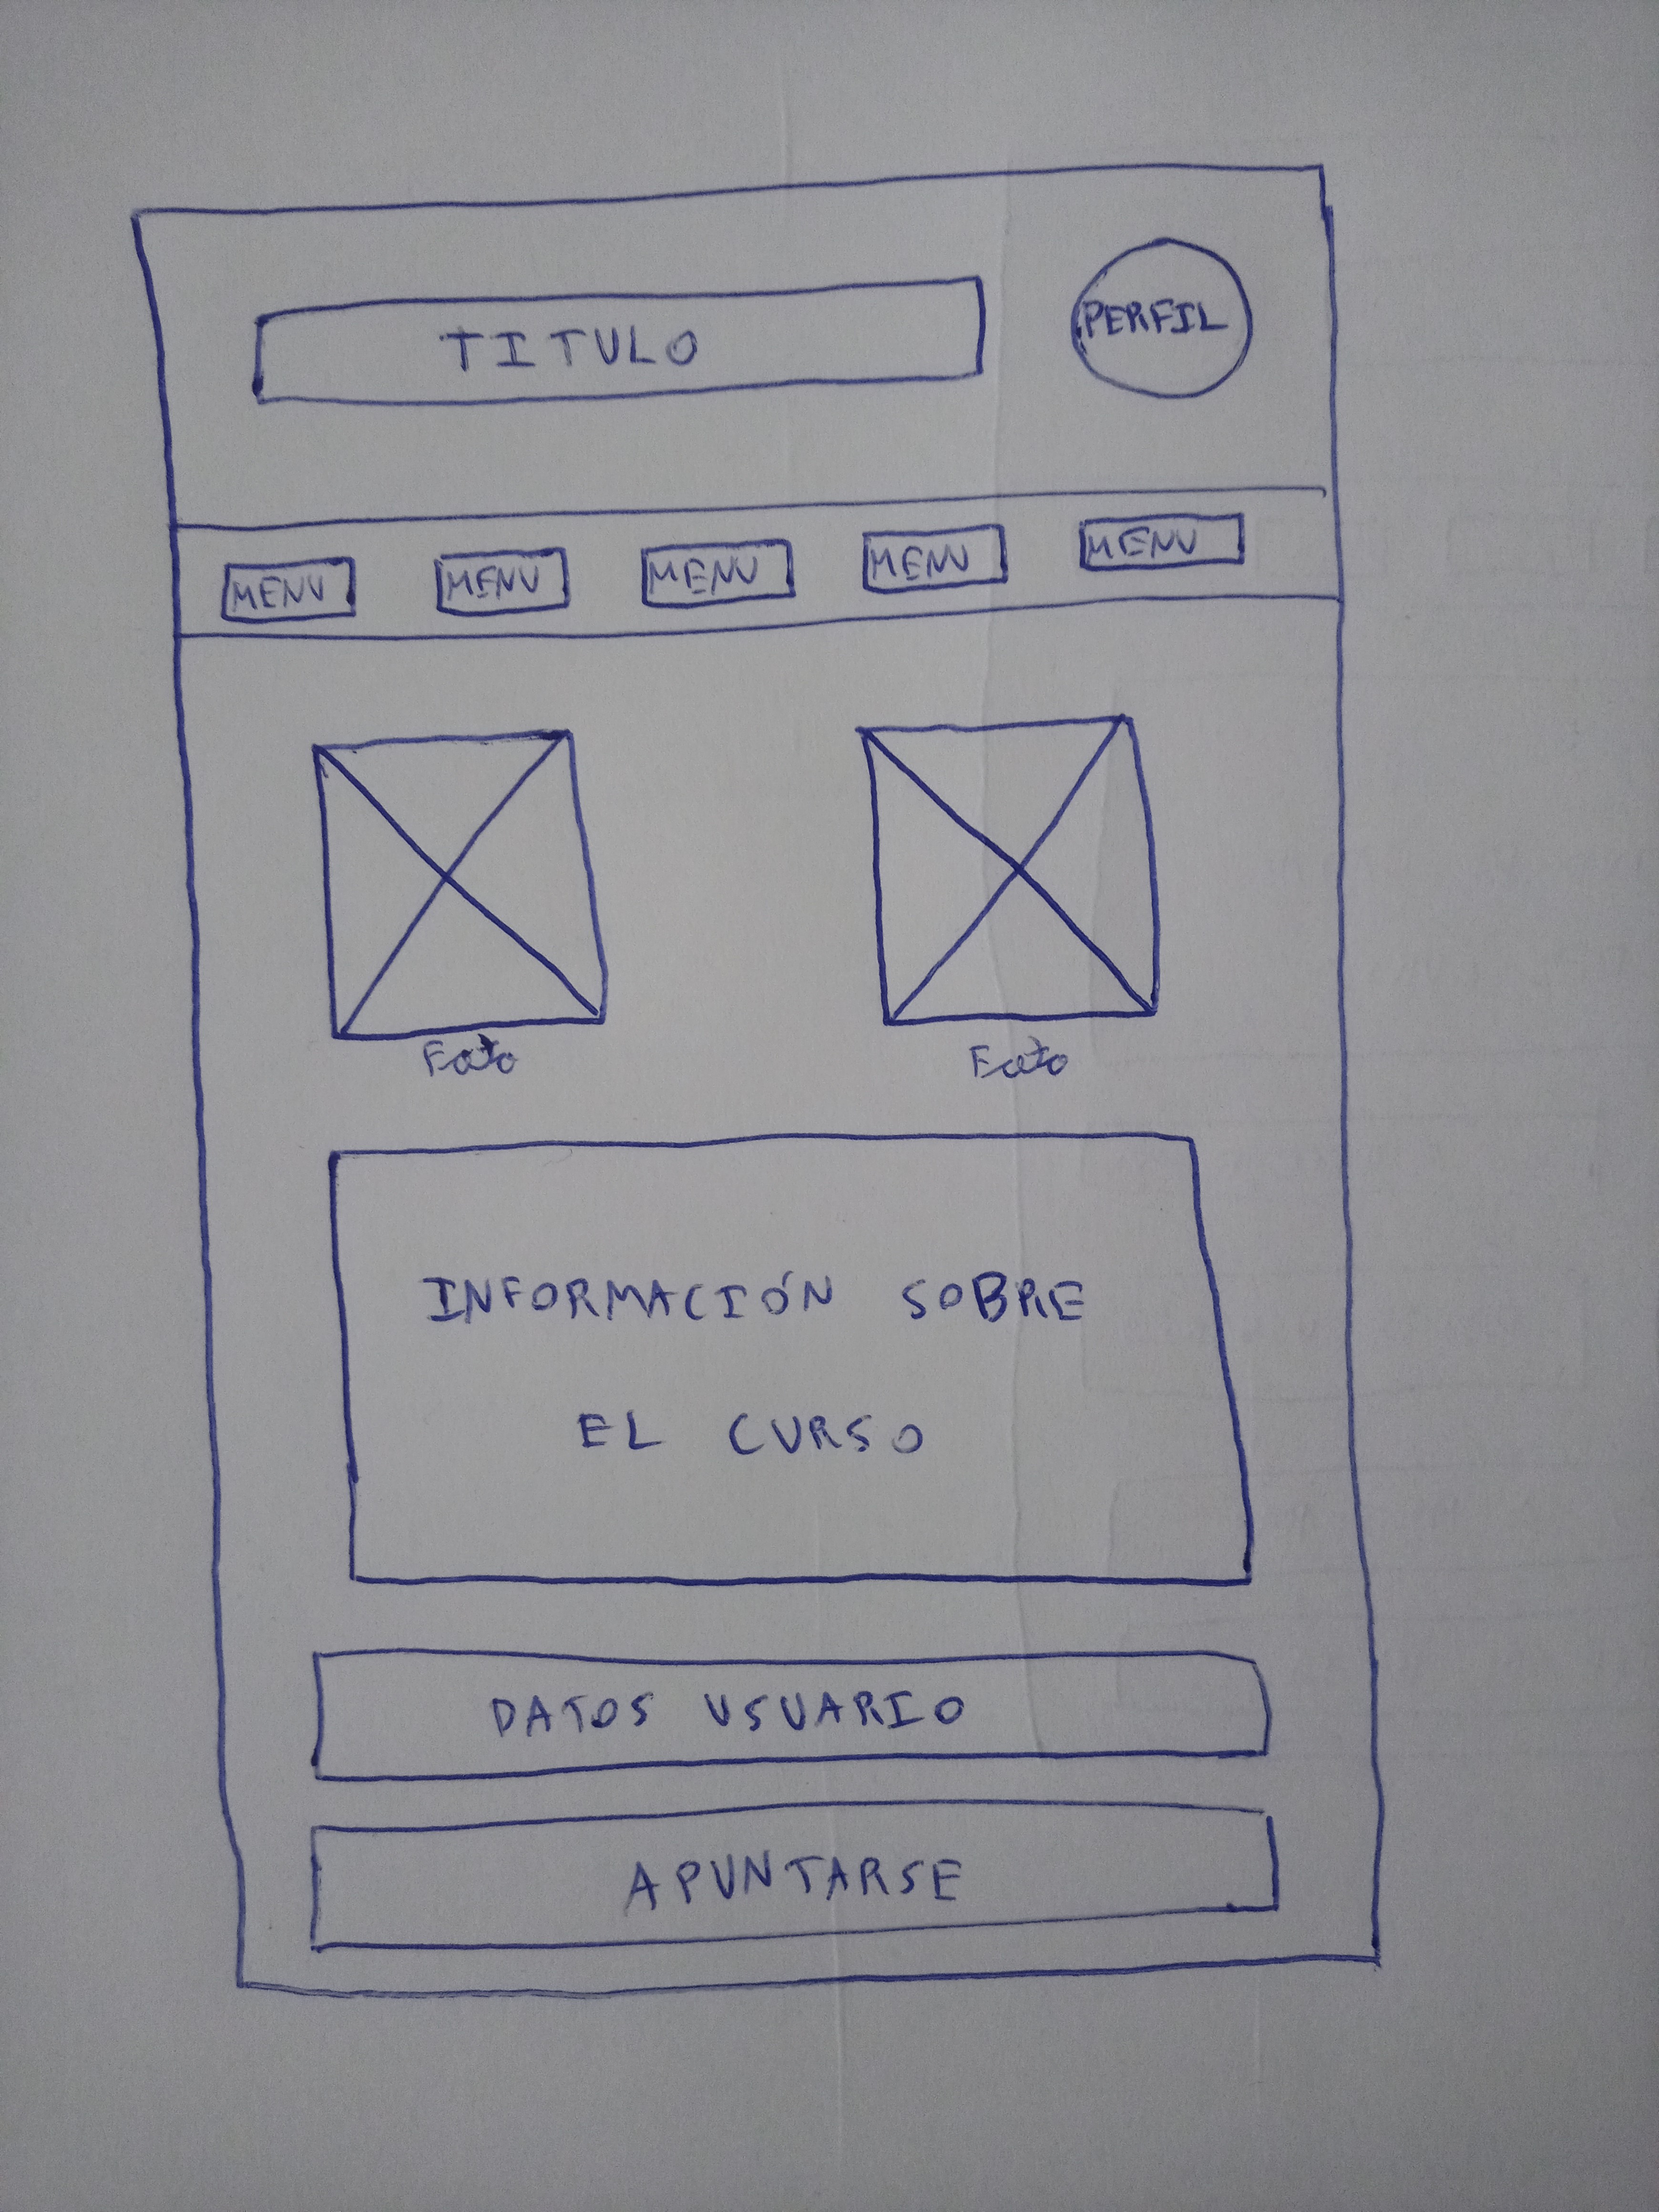 TITULO
PERFIL
MENU MENU MENU MENU MENU
Foto Foto
INFORMACIÓN SOBRE
EL CURSO
DATOS USUARIO
APUNTARSE